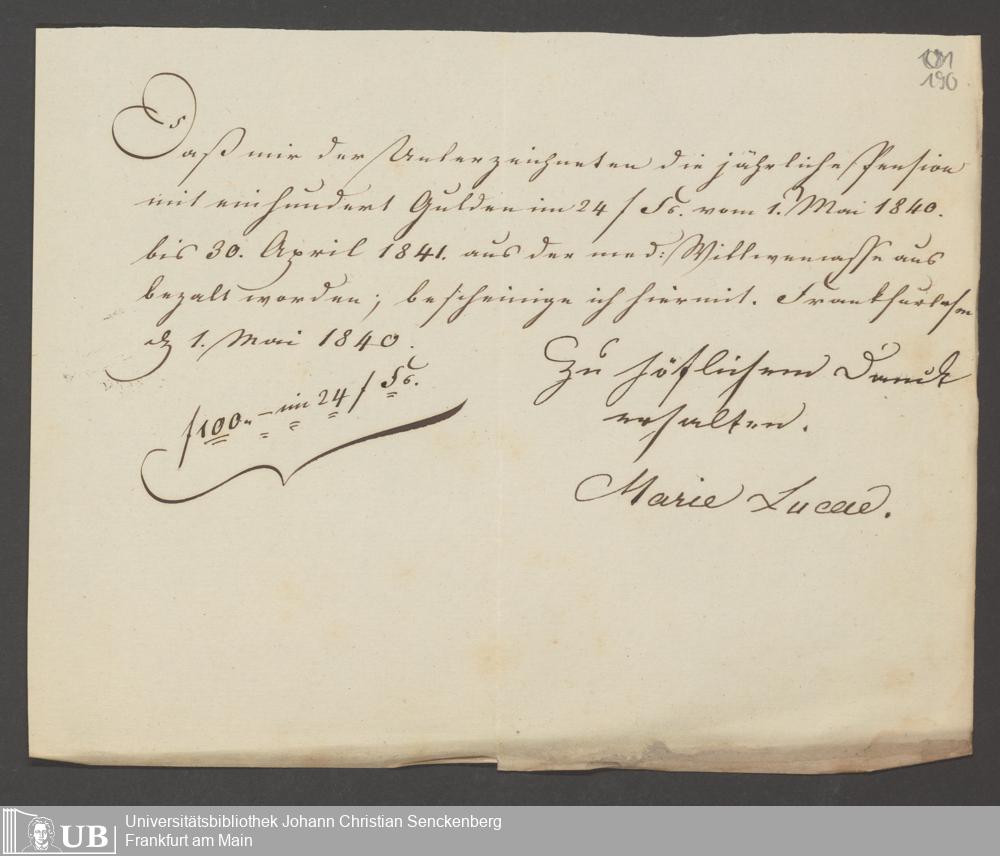 190
Daß mir der Unterzeichneten die jährliche Pension
mit einhundert Gulden im 24 f Fß. vom 1. Mai 1840.
bis 30. April 1841. aus der med: Wittwencasse aus
bezalt worden; bescheinige ich hiermit. Frankfurt
1. Mai 1840.
Zu höflichem Danck
erhalten.
f 100. – im 24 f Fß.
Marie Lucae.
UB
Universitätsbibliothek Johann Christian Senckenberg
Frankfurt am Main